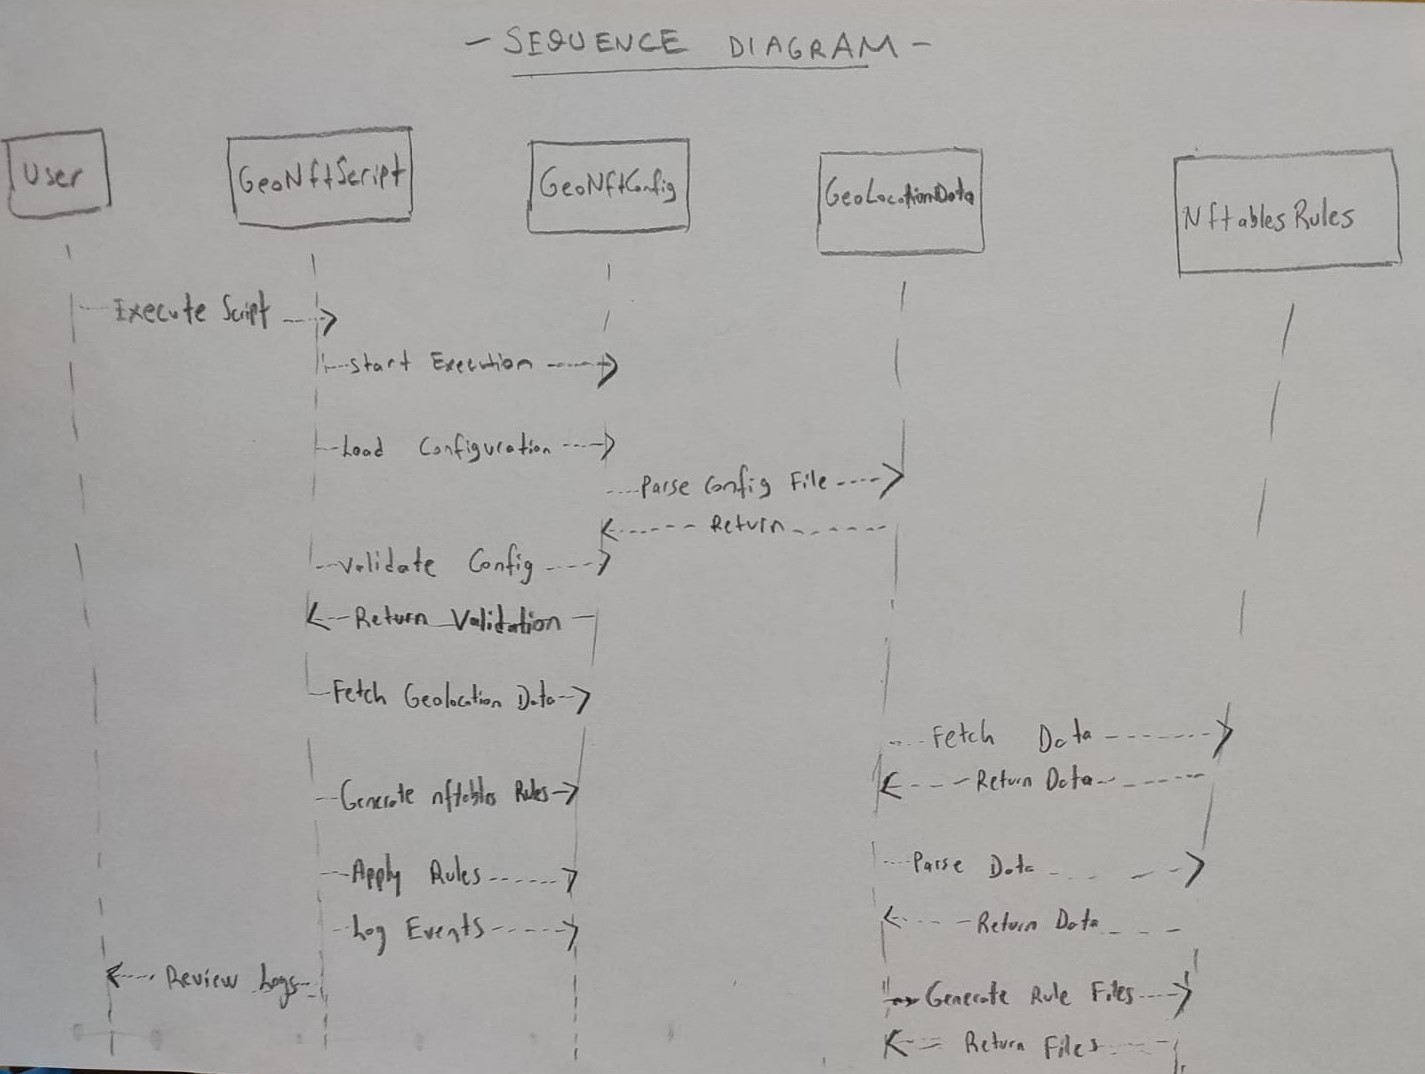 - SEQUENCE DIAGRAM -
User
GeoNftScript
GeoNftConfig
GeoLocationData
NftablesRules
Execute Script
Start Execution
Load Configuration
Parse Config File
Return
Validate Config
Return Validation
Fetch Geolocation Data
Fetch Data
Return Data
Generate nftables Rules
Parse Data
Apply Rules
Return Data
Log Events
Review Logs
Generate Rule Files
Return Files